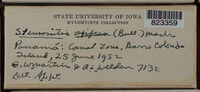 STATE UNIVERSITY OF IOWA
MYXOMYCETES COLLECTION
823359
Stemonitis (Bull) Macbr
Panamá: Canal Zone, Barro Colorado
Island, 25 June 1952
G. W. Martin & A L Welden 7132
Det.